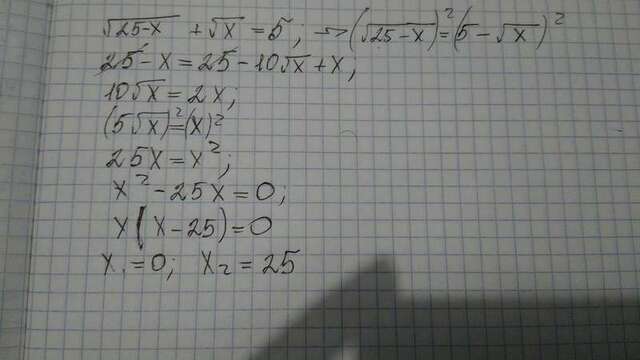 √25-x + √x = 5; => (√25-x)²=(5-√x)²
25-x=25-10√x+x;
10√x=2x;
(5√x)²=(x)²
25x=x²;
x²-25x=0;
x(x-25)=0
x₁=0; x₂=25